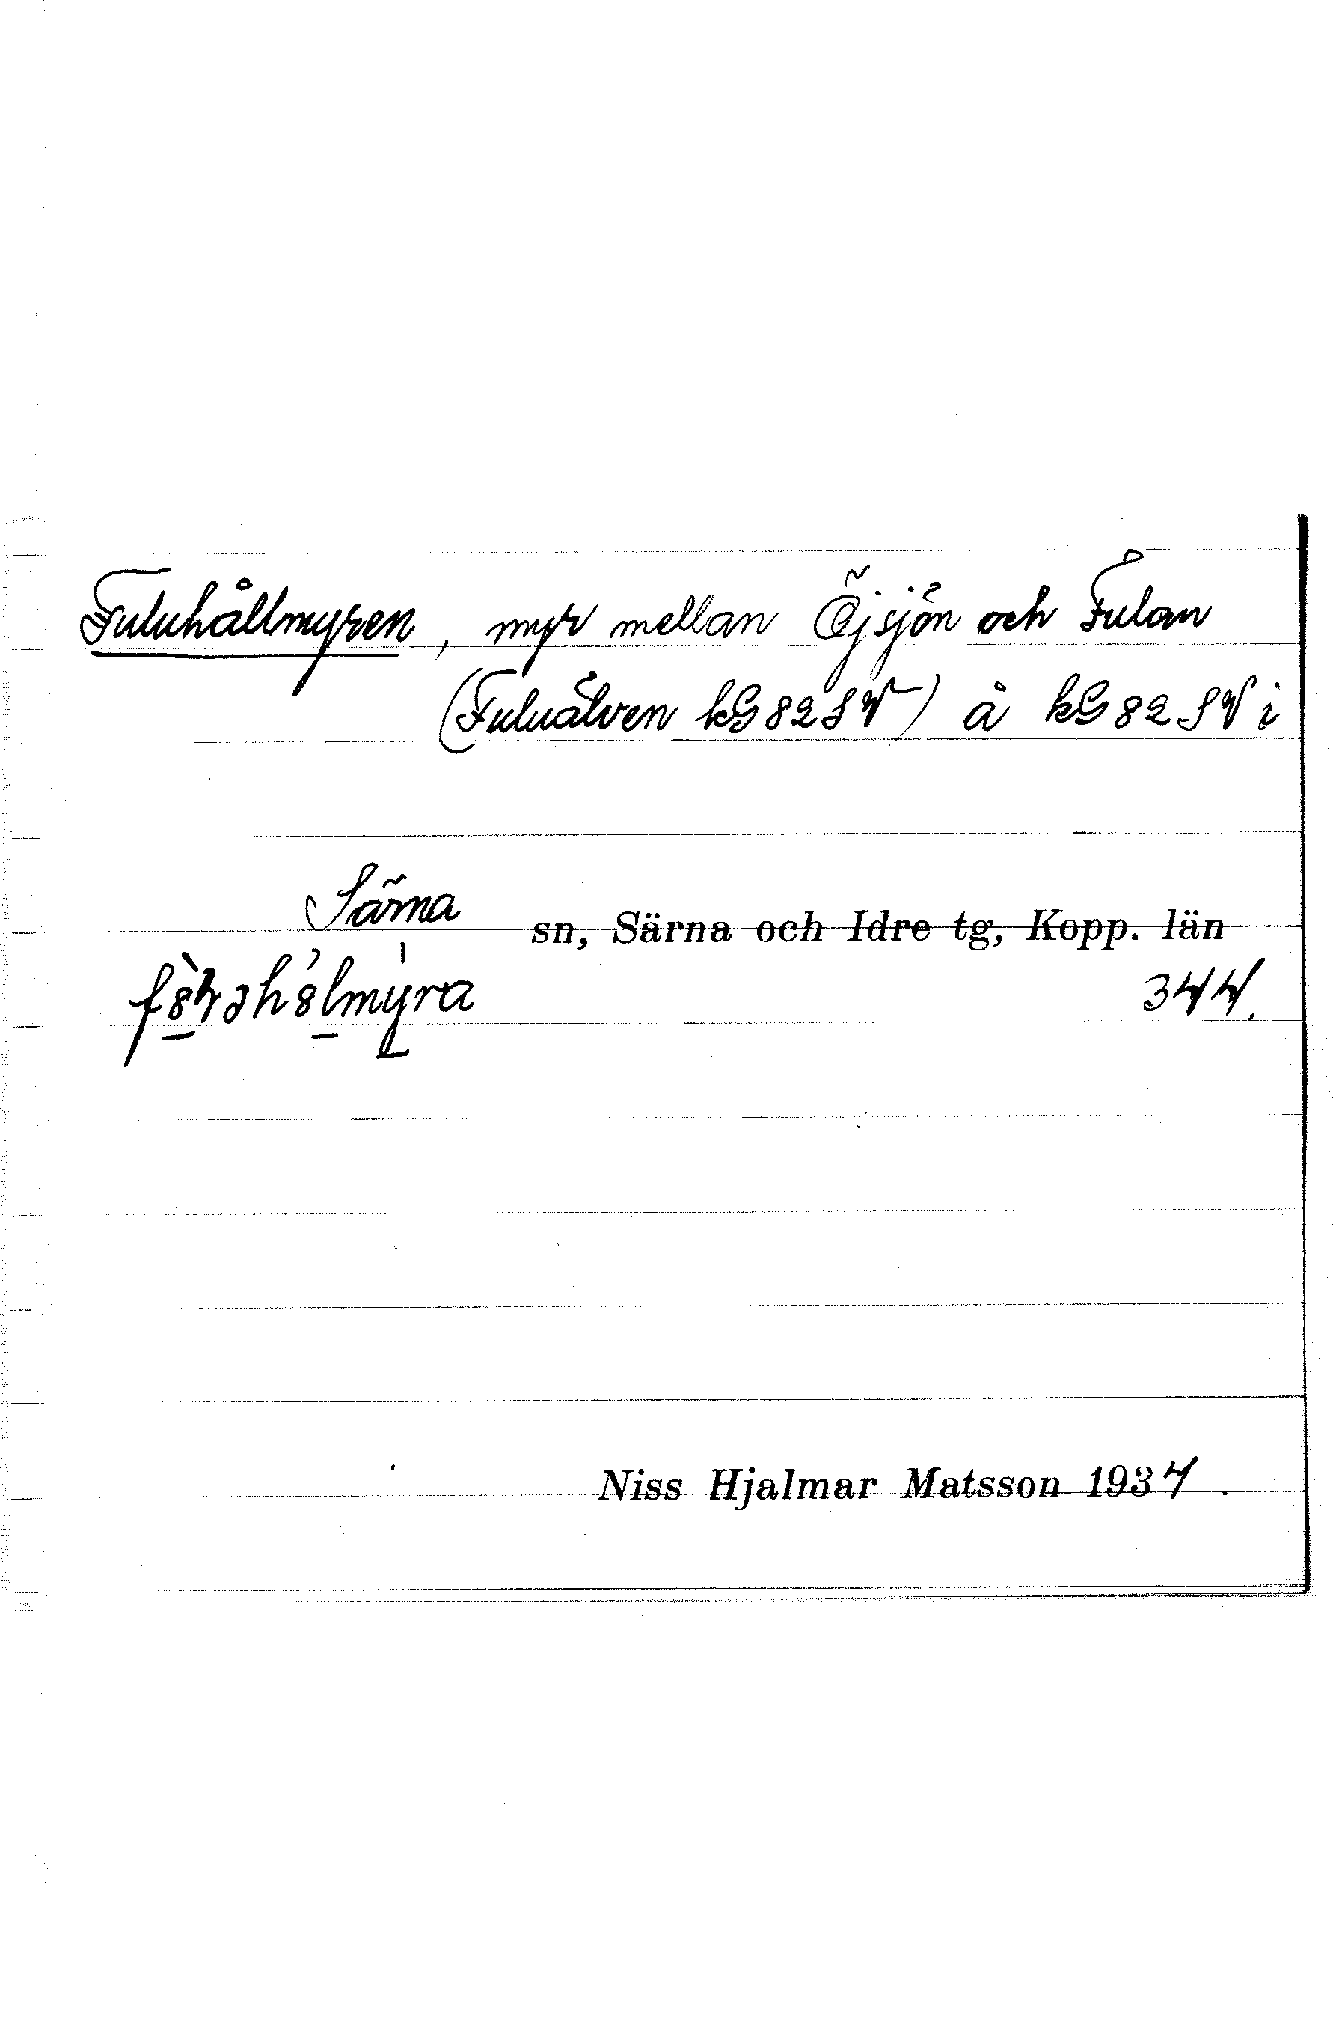 Fuluhållmyren, myr mellan Öjsjön och Fulan
(Fuluälven kG 82 SV) å kG 82 SV i
Särna sn, Särna och Idre tg, Kopp. län
344.
Niss Hjalmar Matsson 1934.